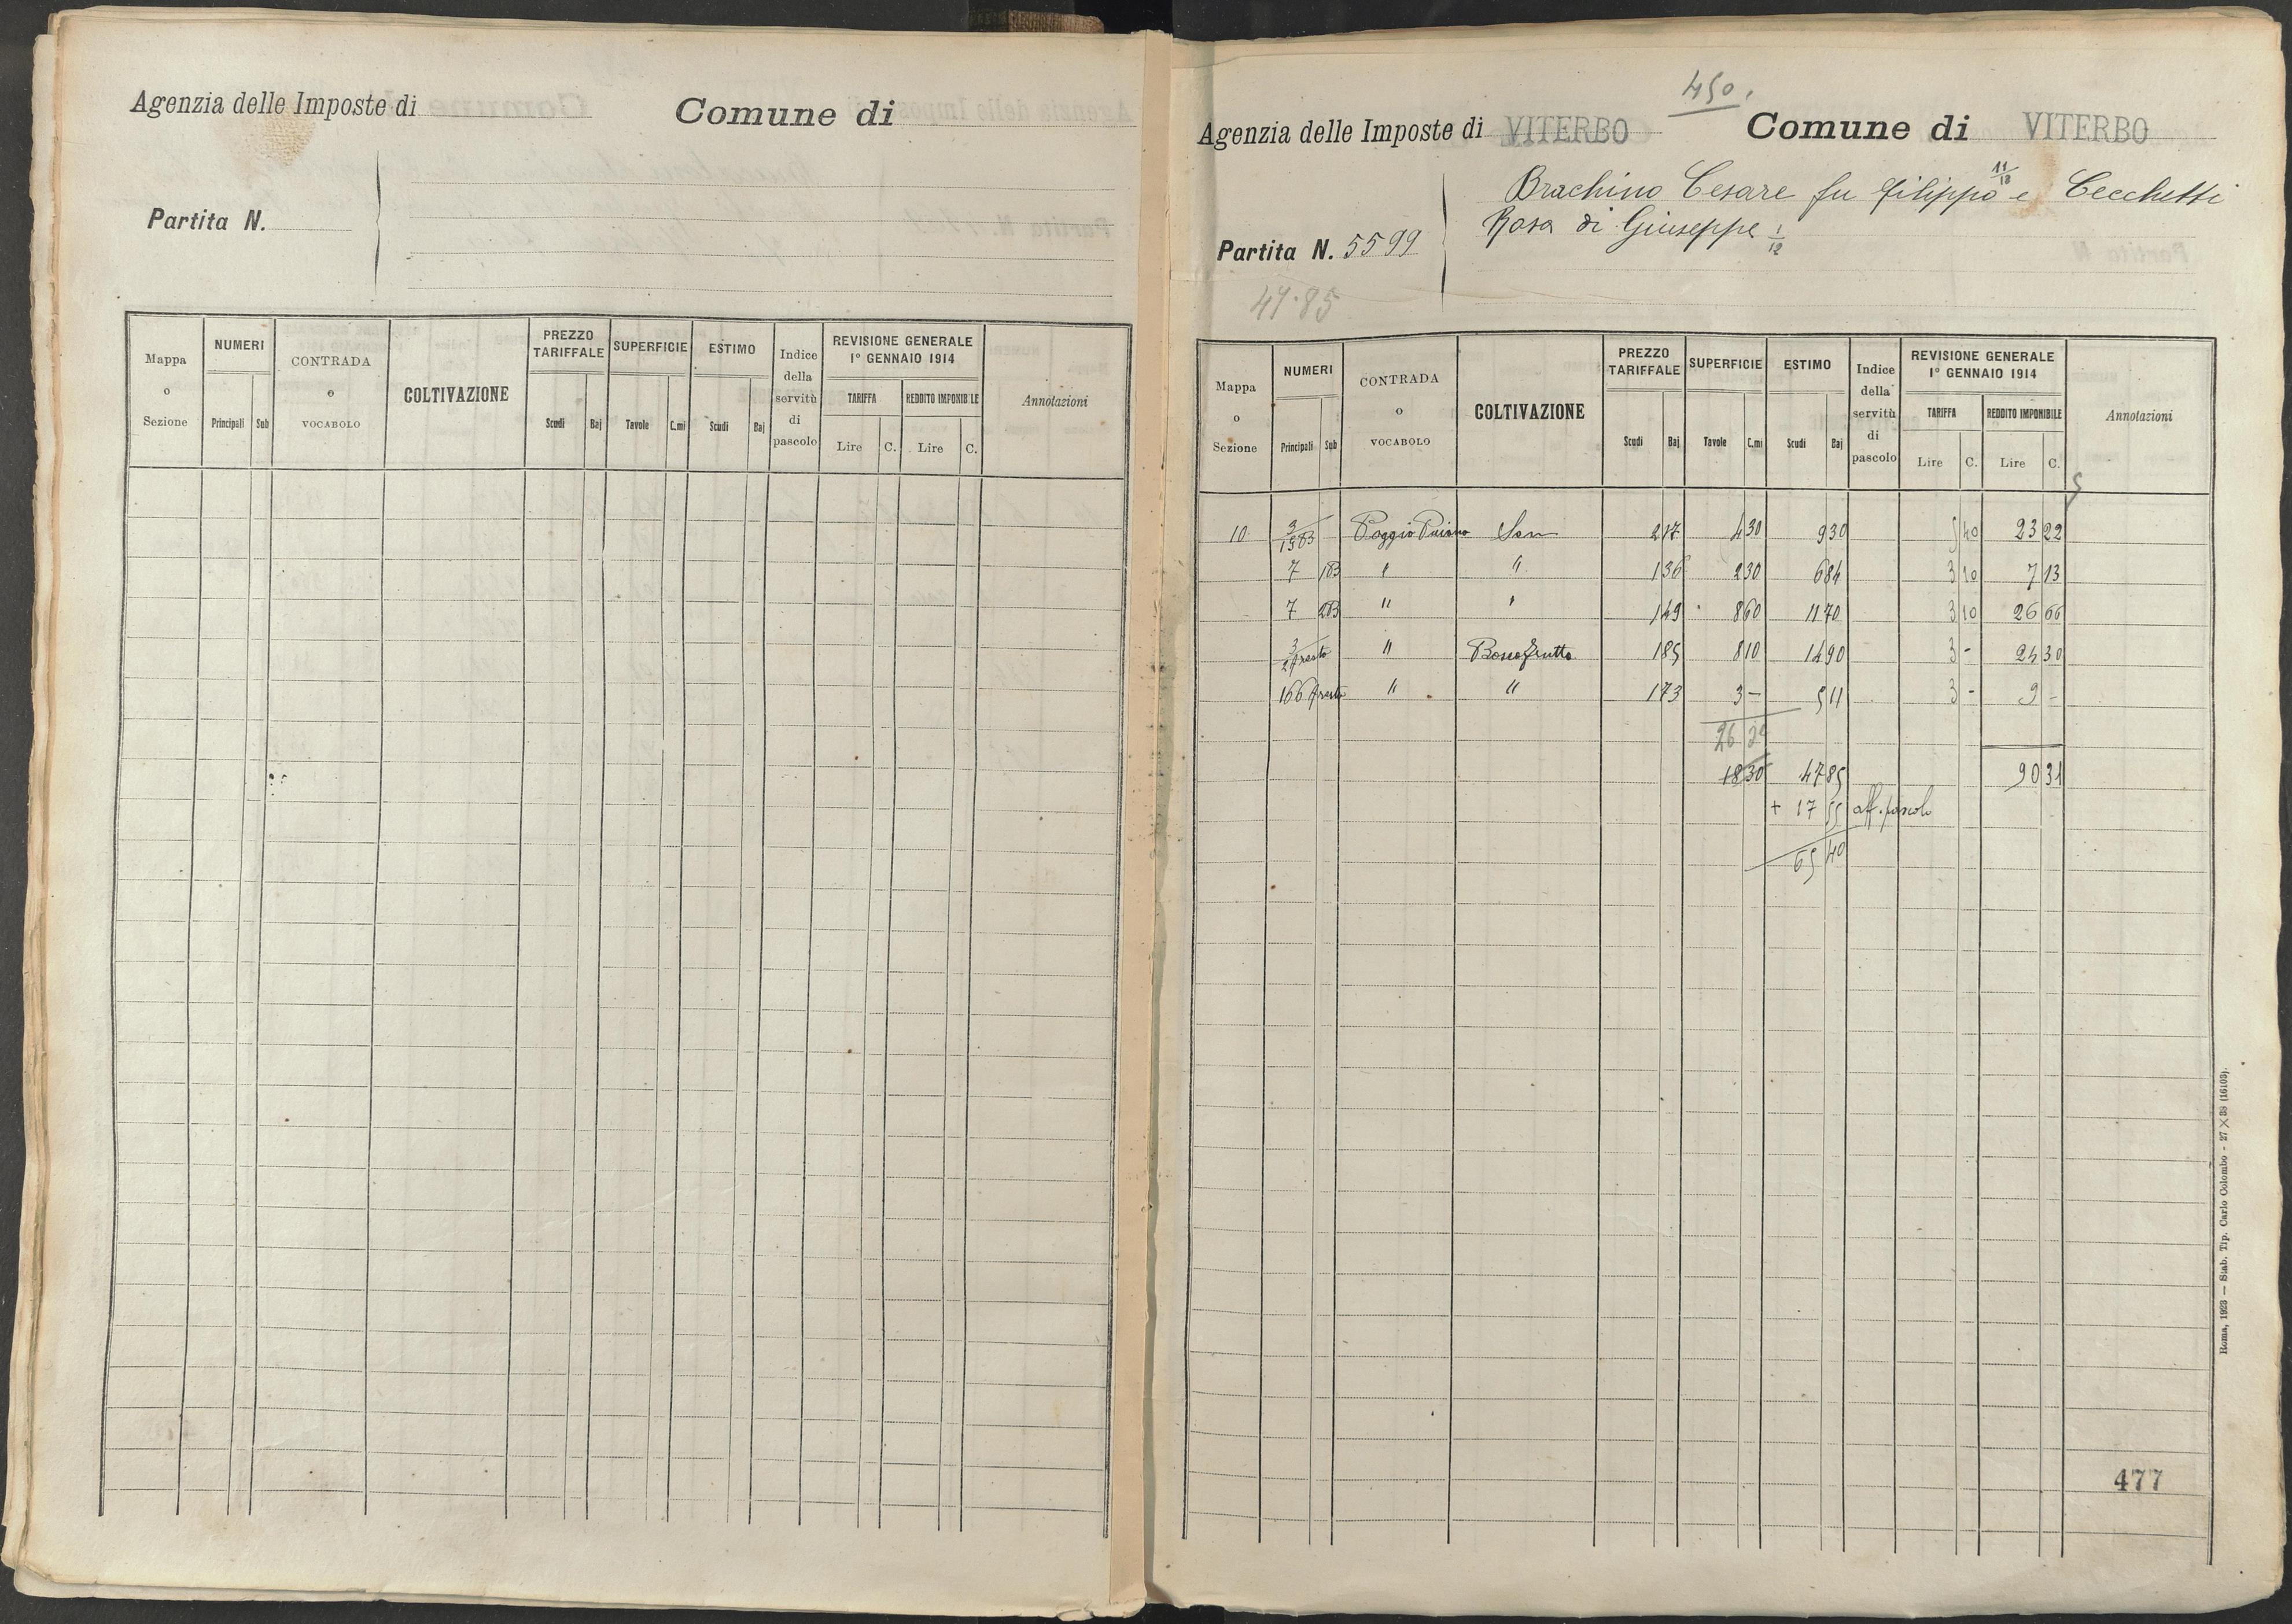 Agenzia delle Imposte di
Comune di
Partita N.
Mappa o Sezione
NUMERI
Principali
Sub
CONTRADA o VOCABOLO
COLTIVAZIONE
PREZZO TARIFFALE
Scudi
Baj
SUPERFICIE
Tavole
C.mi
ESTIMO
Scudi
Baj
Indice della servitù di pascolo
REVISIONE GENERALE
1° GENNAIO 1914
TARIFFA
REDDITO IMPONIBILE
Lire
C.
Lire
C.
Annotazioni
450.
Agenzia delle Imposte di VITERBO
Comune di VITERBO
Brachino Cesare fu Filippo 11/12 e Cecchetti
Rosa di Giuseppe 1/12
Partita N. 5599
47.85
Mappa o Sezione
NUMERI
Principali
Sub
CONTRADA o VOCABOLO
COLTIVAZIONE
PREZZO TARIFFALE
Scudi
Baj
SUPERFICIE
Tavole
C.mi
ESTIMO
Scudi
Baj
Indice della servitù di pascolo
REVISIONE GENERALE
1° GENNAIO 1914
TARIFFA
REDDITO IMPONIBILE
Lire
C.
Lire
C.
Annotazioni
10 3/1583 Poggio Sem 2 17 4 30 9 30 5 40 23 22
7 183 " " 1 36 2 30 6 84 3 10 7 13
7 283 " " 1 49 8 60 11 70 3 10 26 66
3/29 resto " Bosco frutto 1 85 8 10 14 90 3 - 24 30
166 resto " " 1 73 3 - 5 11 3 - 9 -
26 30
18 30 47 85 90 31
+ 17 55 aff. pascolo
65 40
477
Roma, 1923 — Stab. Tip. Carlo Colombo - 27 X 38 (16103).